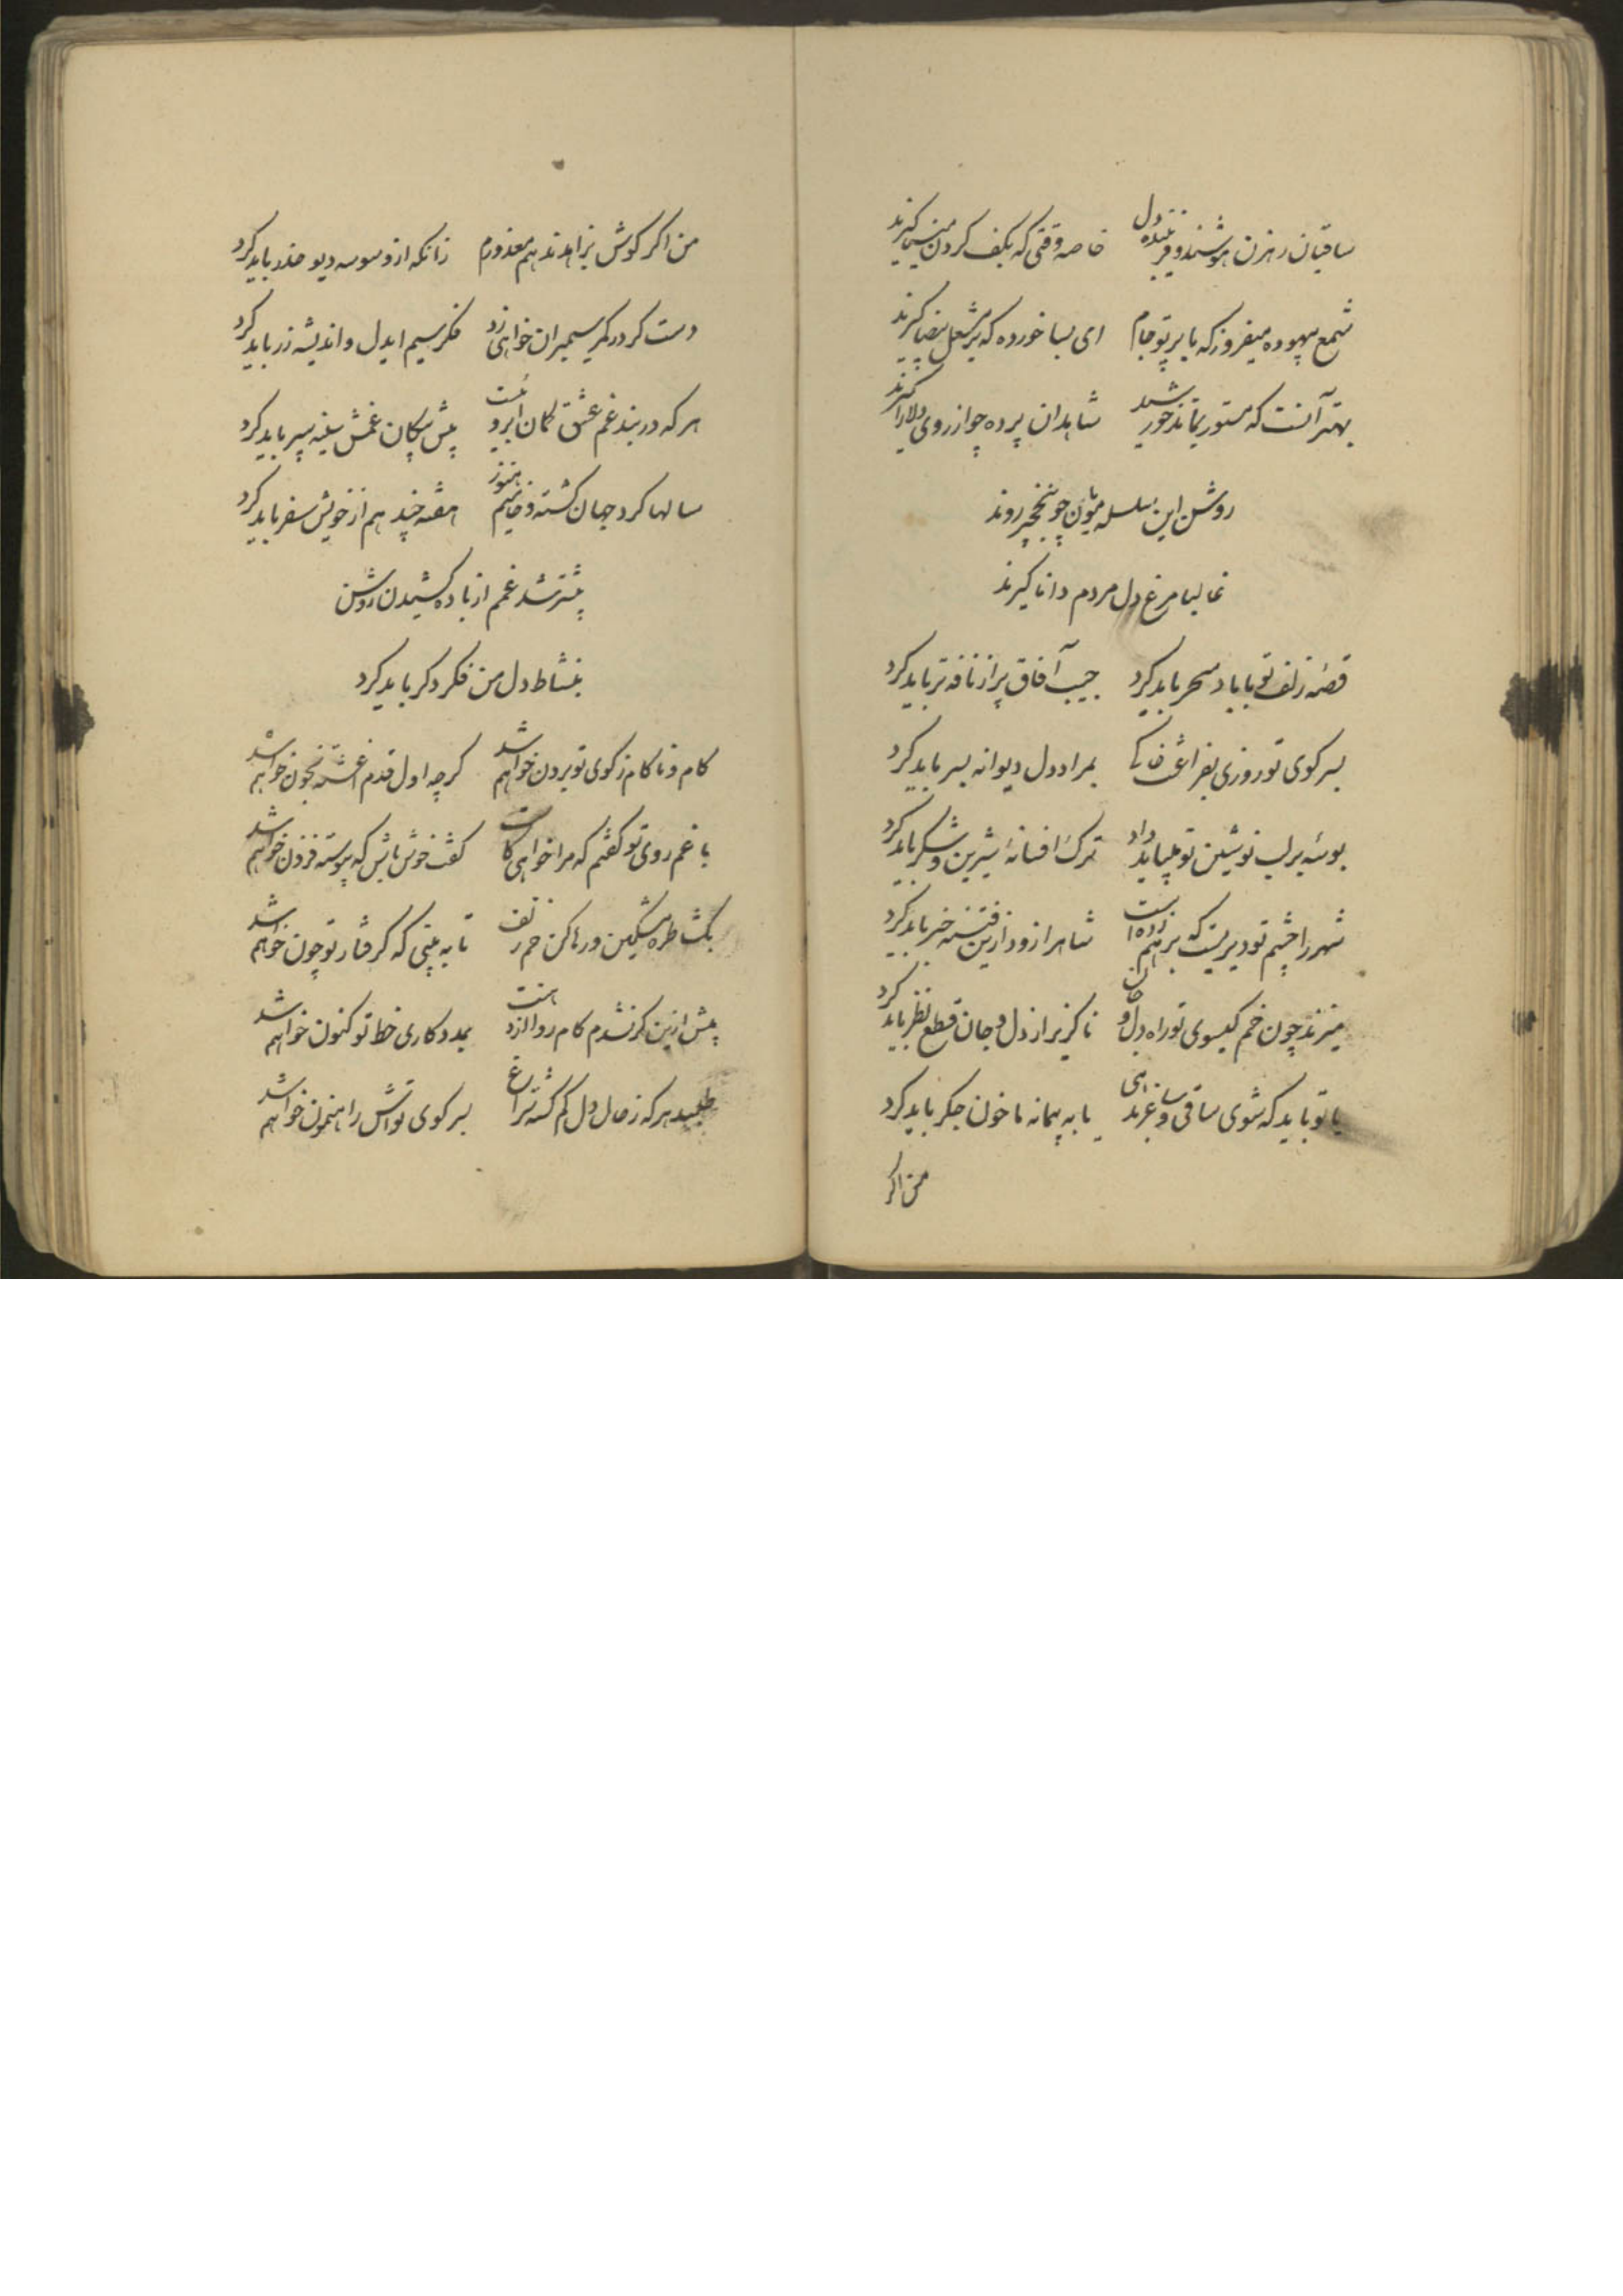 ساقیان رهزن هوشند و فریبنده دل خاصه وقتی که بکف گردن مینا گیرند
شمع بیهوده میفروز که با پرتو جام ای بسا خورده که بر مشعل بیضا گیرند
بهتر آنست که مستور بماند خورشید شاهدان پرده چو از روی دلارا گیرند
روشن این سلسله مویان چو بنخجیر روند
غالبا مرغ دل مردم دانا گیرند
قصهٔ زلف تو با باد سحر باید کرد جیب آفاق پر از نافه تر باید کرد
بسر کوی تو روزی بفراغت بمراد دل دیوانه بسر باید کرد
بوسهٔ بر لب نوشین تو میباید داد ترک افسانهٔ شیرین و شکر باید کرد
شهر را چشم تو دیریست که بر هم زده است شاه را زود ازین فتنه خبر باید کرد
میزند چون خم گیسوی تو راه دل و جان ناگزیر از دل و جان قطع نظر باید کرد
یا تو باید که شوی ساقی و ساغر بدهی یا به پیمانه ما خون جگر باید کرد
من اگر
من اگر گوش بزاهد ندهم معذورم زانکه از وسوسه دیو حذر باید کرد
دست گر در کمر سیمبران خواهی زد فکر سیم ایدل و اندیشه زر باید کرد
هر که در بند غم عشق کمان ابروئست پیش پیکان غمش سینه سپر باید کرد
سالها گرد جهان گشته و خامیم هنوز هفته چند هم از خویش سفر باید کرد
بیشتر شد غمم از باده کشیدن روشن
بنشاط دل من فکر دگر باید کرد
کام و ناکام ز کوی تو برون خواهم شد گرچه اول قدم آغشته بخون خواهم شد
با غم روی تو گفتم که مرا خواهی کاست گفت خوش باش که پیوسته فزون خواهم شد
بگشا طره مشکین و رها کن خم زلف تا به بینی که گرفتار تو چون خواهم شد
پیش ازین گر نشدم کام روا از دهنت بمددکاری خط تو کنون خواهم شد
طلبید هر که ز حال دل گم گشته سراغ بسر کوی تواش راهنمون خواهم شد